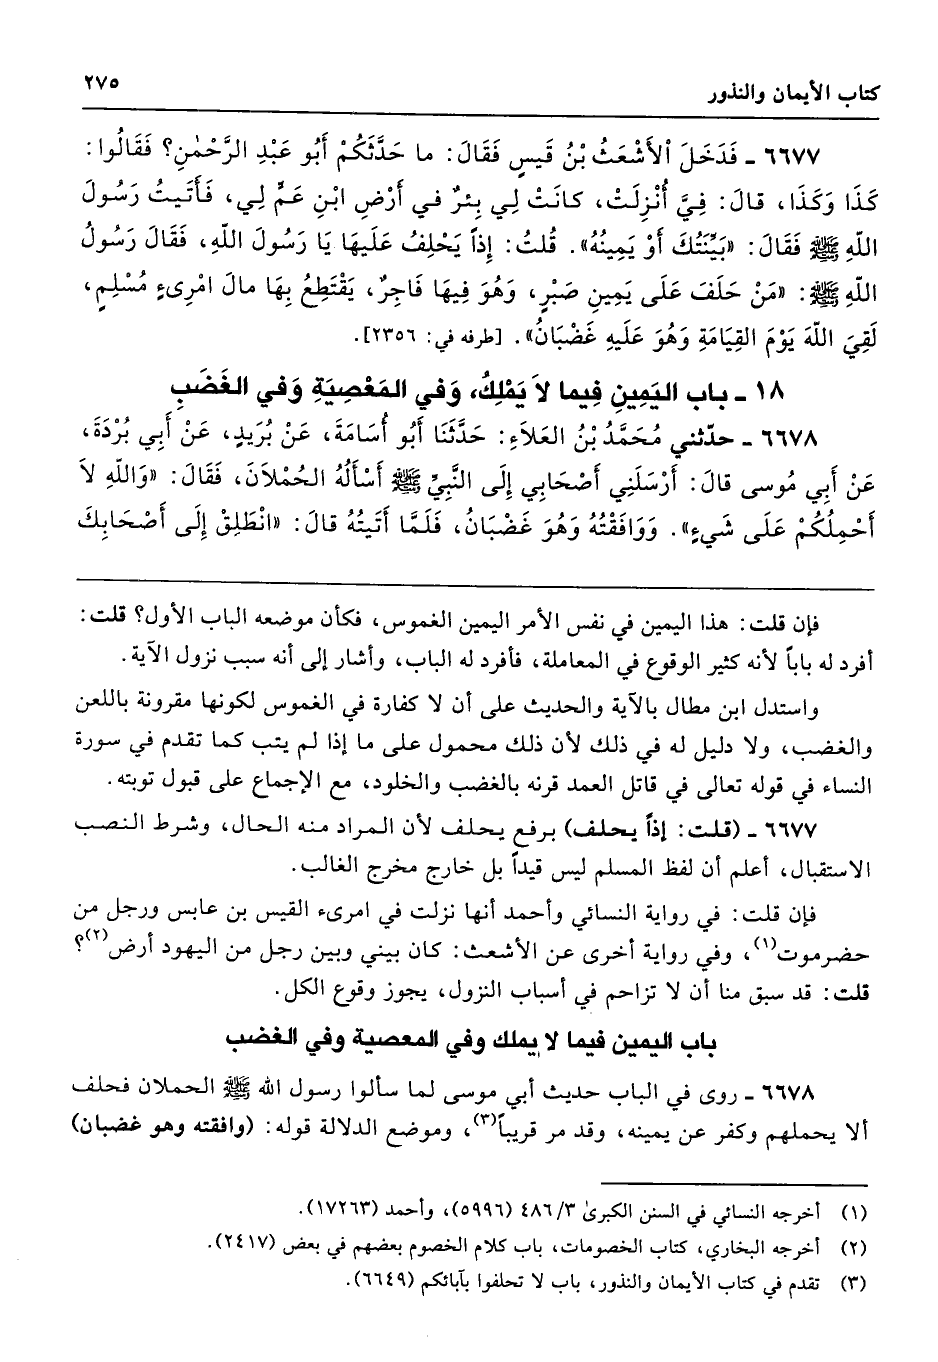 كتاب الأيمان والنذور
٢٧٥
٦٦٧٧ ـ فَدَخَلَ ٱلأَشْعَثُ بْنُ قَيسٍ فَقَالَ: ما حَدَّثَكُمْ أَبُو عَبْدِ الرَّحْمٰنِ؟ فَقَالُوا:
كَذَا وَكَذَا، قالَ: فِيَّ أُنْزِلَتْ، كانَتْ لِي بِئرٌ في أَرْضِ ابْنِ عَمٍّ لِي، فَأَتَيتُ رَسُولَ
اللّهِ ﷺ فَقَالَ: «بَيِّنَتُكَ أَوْ يَمِينُهُ». قُلتُ: إِذاً يَحْلِفُ عَلَيهَا يَا رَسُولَ اللّهِ، فَقَالَ رَسُولُ
اللّهِ ﷺ: «مَنْ حَلَفَ عَلَى يَمِينِ صَبْرٍ، وَهُوَ فِيهَا فَاجِرٌ، يَقْتَطِعُ بِهَا مالَ امْرِىءٍ مُسْلِمٍ،
لَقِيَ اللّهَ يَوْمَ القِيَامَةِ وَهُوَ عَلَيهِ غَضْبَانُ». [طرفه في: ٢٣٥٦].
١٨ ـ باب اليَمِينِ فِيما لاَ يَمْلِكُ، وَفي المَعْصِيَةِ وَفي الغَضَبِ
٦٦٧٨ ـ حدّثني مُحَمَّدُ بْنُ العَلاَءِ: حَدَّثَنَا أَبُو أُسَامَةَ، عَنْ بُرَيدٍ، عَنْ أَبِي بُرْدَةَ،
عَنْ أَبِي مُوسى قالَ: أَرْسَلَنِي أَصْحَابِي إِلَى النَّبِيِّ ﷺ أَسْأَلُهُ الحُمْلاَنَ، فَقَالَ: «وَاللّهِ لاَ
أَحْمِلُكُمْ عَلَى شَيءٍ». وَوَافَقْتُهُ وَهُوَ غَضْبَانُ، فَلَمَّا أَتَيتُهُ قالَ: «انْطَلِقْ إِلَى أَصْحَابِكَ
فإن قلت: هذا اليمين في نفس الأمر اليمين الغموس، فكأن موضعه الباب الأول؟ قلت:
أفرد له باباً لأنه كثير الوقوع في المعاملة، فأفرد له الباب، وأشار إلى أنه سبب نزول الآية.
واستدل ابن مطال بالآية والحديث على أن لا كفارة في الغموس لكونها مقرونة باللعن
والغضب، ولا دليل له في ذلك لأن ذلك محمول على ما إذا لم يتب كما تقدم في سورة
النساء في قوله تعالى في قاتل العمد قرنه بالغضب والخلود، مع الإجماع على قبول توبته.
٦٦٧٧ ـ (قلت: إذاً يحلف) برفع يحلف لأن المراد منه الحال، وشرط النصب
الاستقبال، أعلم أن لفظ المسلم ليس قيداً بل خارج مخرج الغالب.
فإن قلت: في رواية النسائي وأحمد أنها نزلت في امرىء القيس بن عابس ورجل من
حضرموت(١)، وفي رواية أخرى عن الأشعث: كان بيني وبين رجل من اليهود أرض(٢)؟
قلت: قد سبق منا أن لا تزاحم في أسباب النزول، يجوز وقوع الكل.
باب اليمين فيما لا يملك وفي المعصية وفي الغضب
٦٦٧٨ ـ روى في الباب حديث أبي موسى لما سألوا رسول الله ﷺ الحملان فحلف
ألا يحملهم وكفر عن يمينه، وقد مر قريباً(٣)، وموضع الدلالة قوله: (وافقته وهو غضبان)
(١) أخرجه النسائي في السنن الكبرىٰ ٤٨٦/٣ (٥٩٩٦)، وأحمد (١٧٢٦٣).
(٢) أخرجه البخاري، كتاب الخصومات، باب كلام الخصوم بعضهم في بعض (٢٤١٧).
(٣) تقدم في كتاب الأيمان والنذور، باب لا تحلفوا بآبائكم (٦٦٤٩).